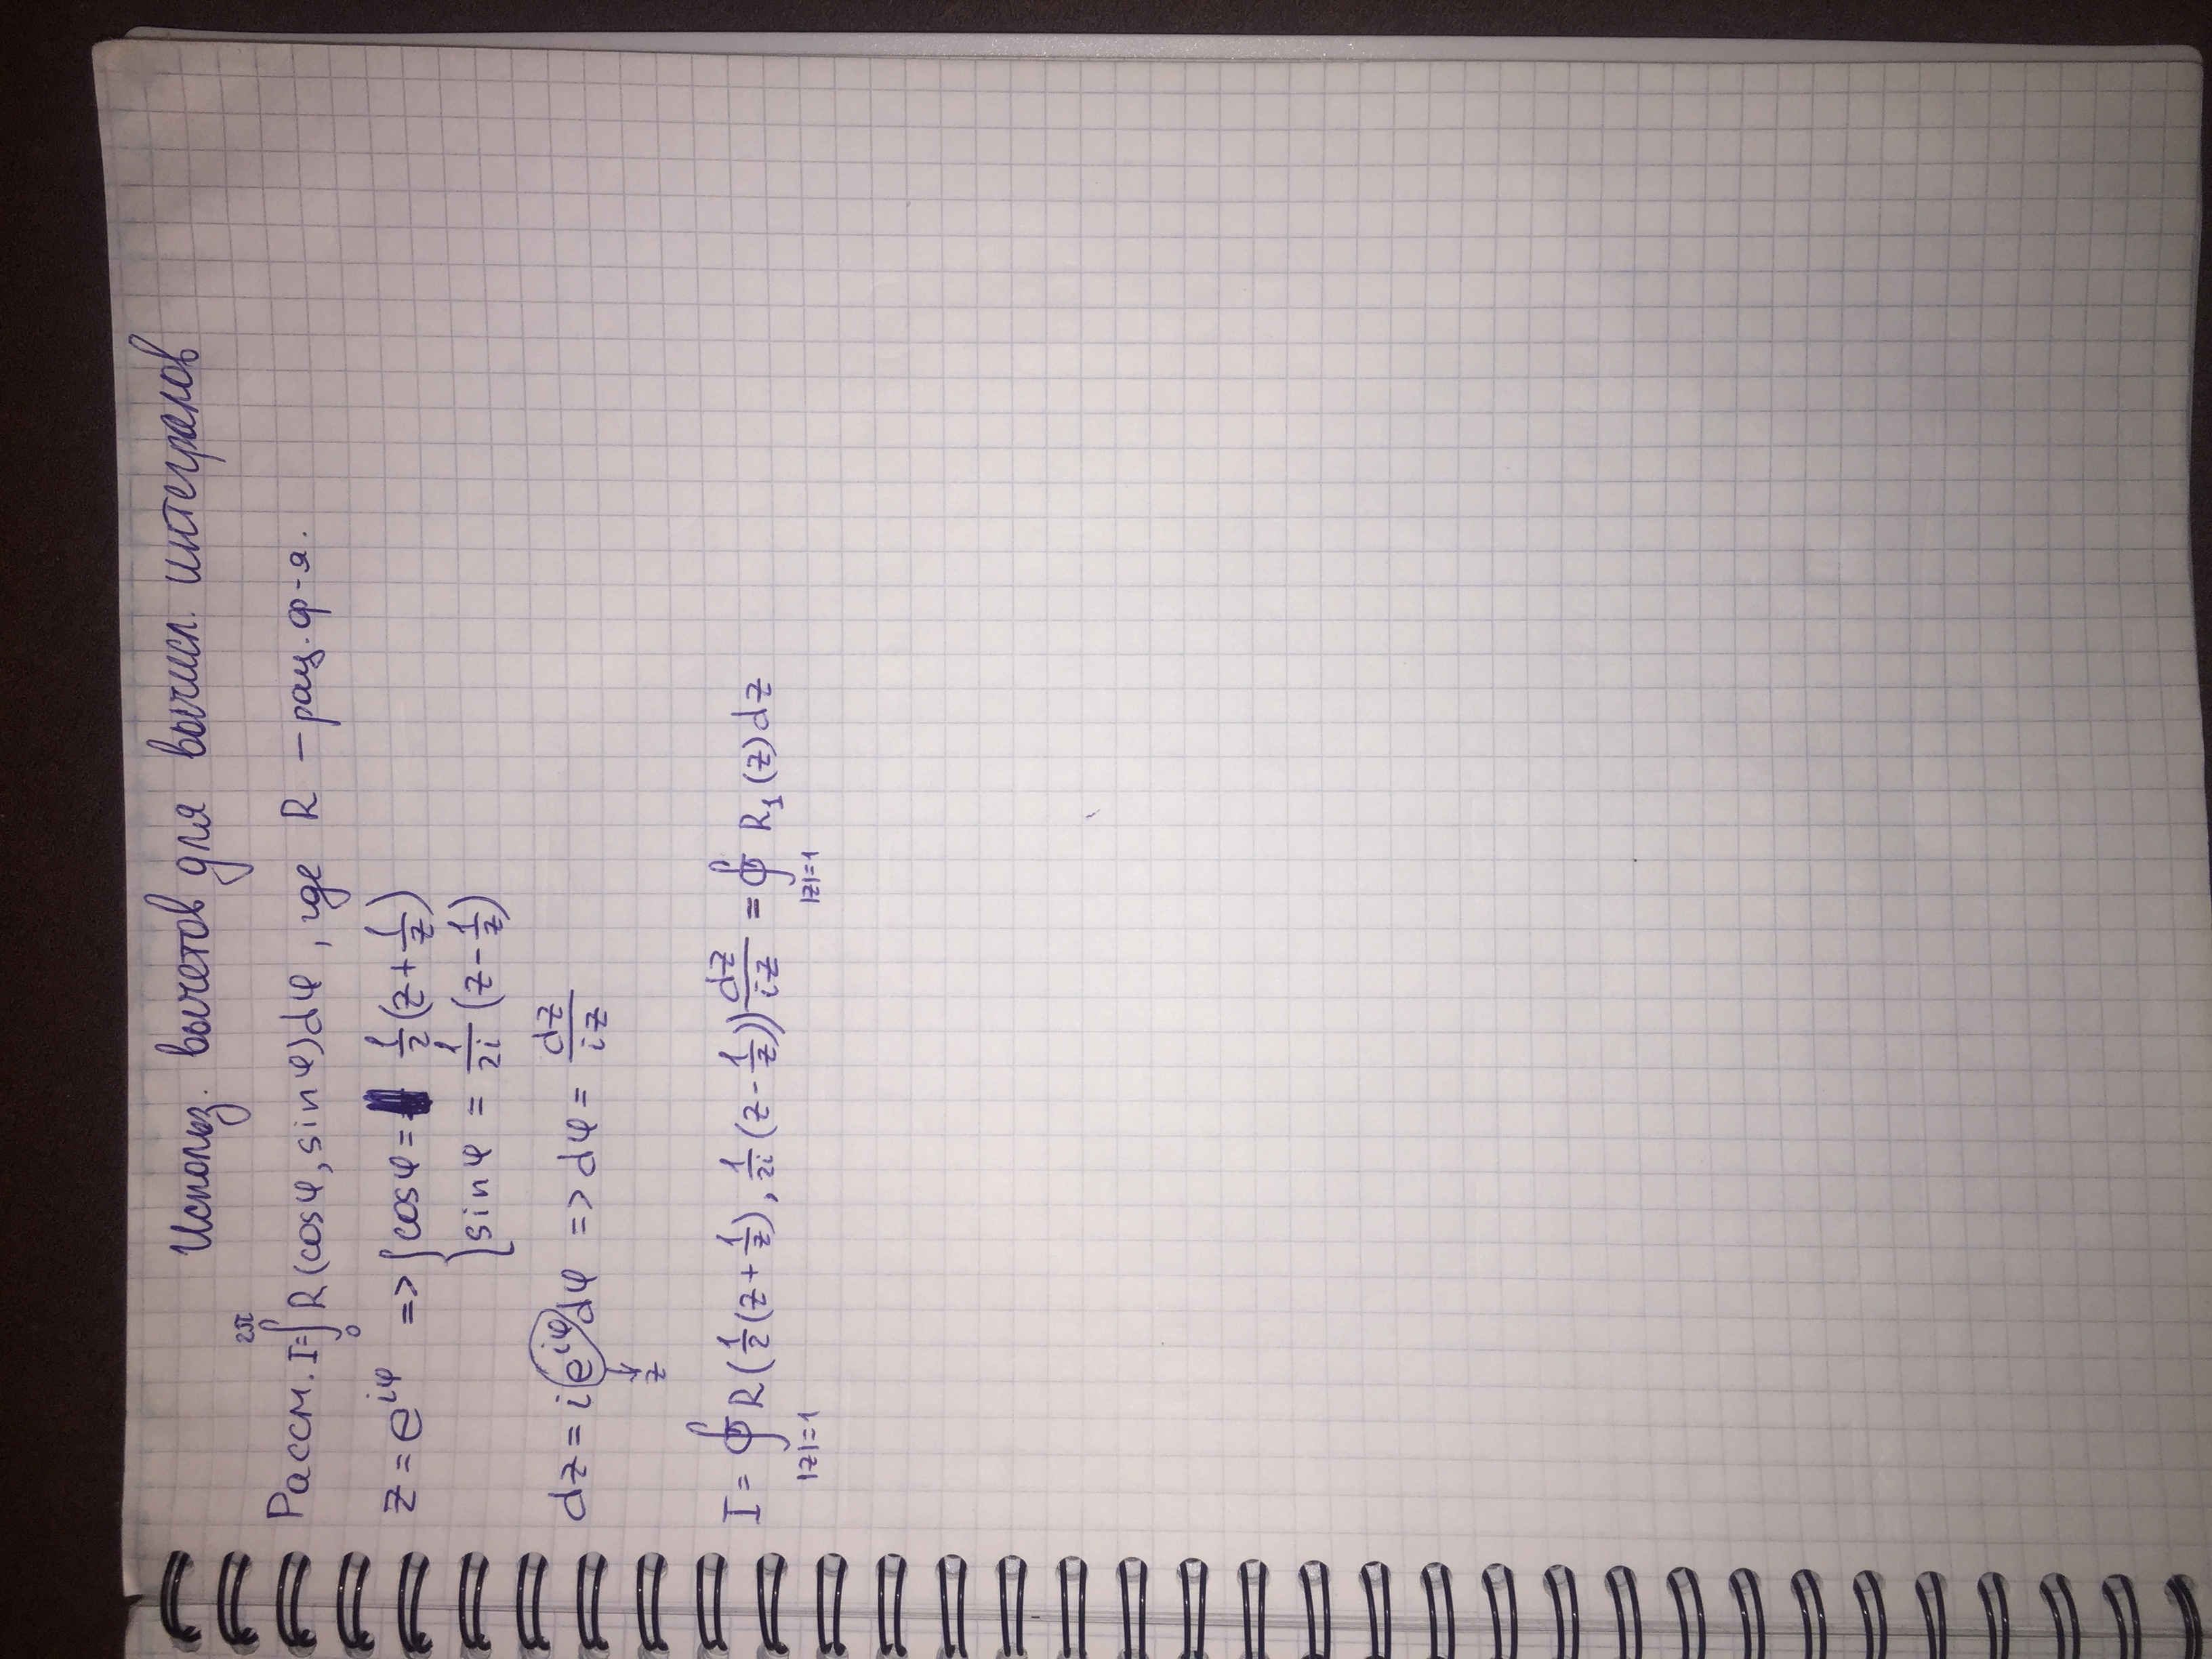 Использ. вычетов для вычисл. интегралов
Рассм. I=∫₀^{2π} R(cosφ, sinφ)dφ, где R – рац. ф-я.
z = e^{iφ} => { cosφ = 1/2 (z + 1/z)
sinφ = 1/2i (z - 1/z)
dz = i e^{iφ} dφ => dφ = dz/iz
↓
z
I = ∮_{|z|=1} R(1/2(z + 1/z), 1/2i(z - 1/z)) dz/iz = ∮_{|z|=1} R₁(z)dz